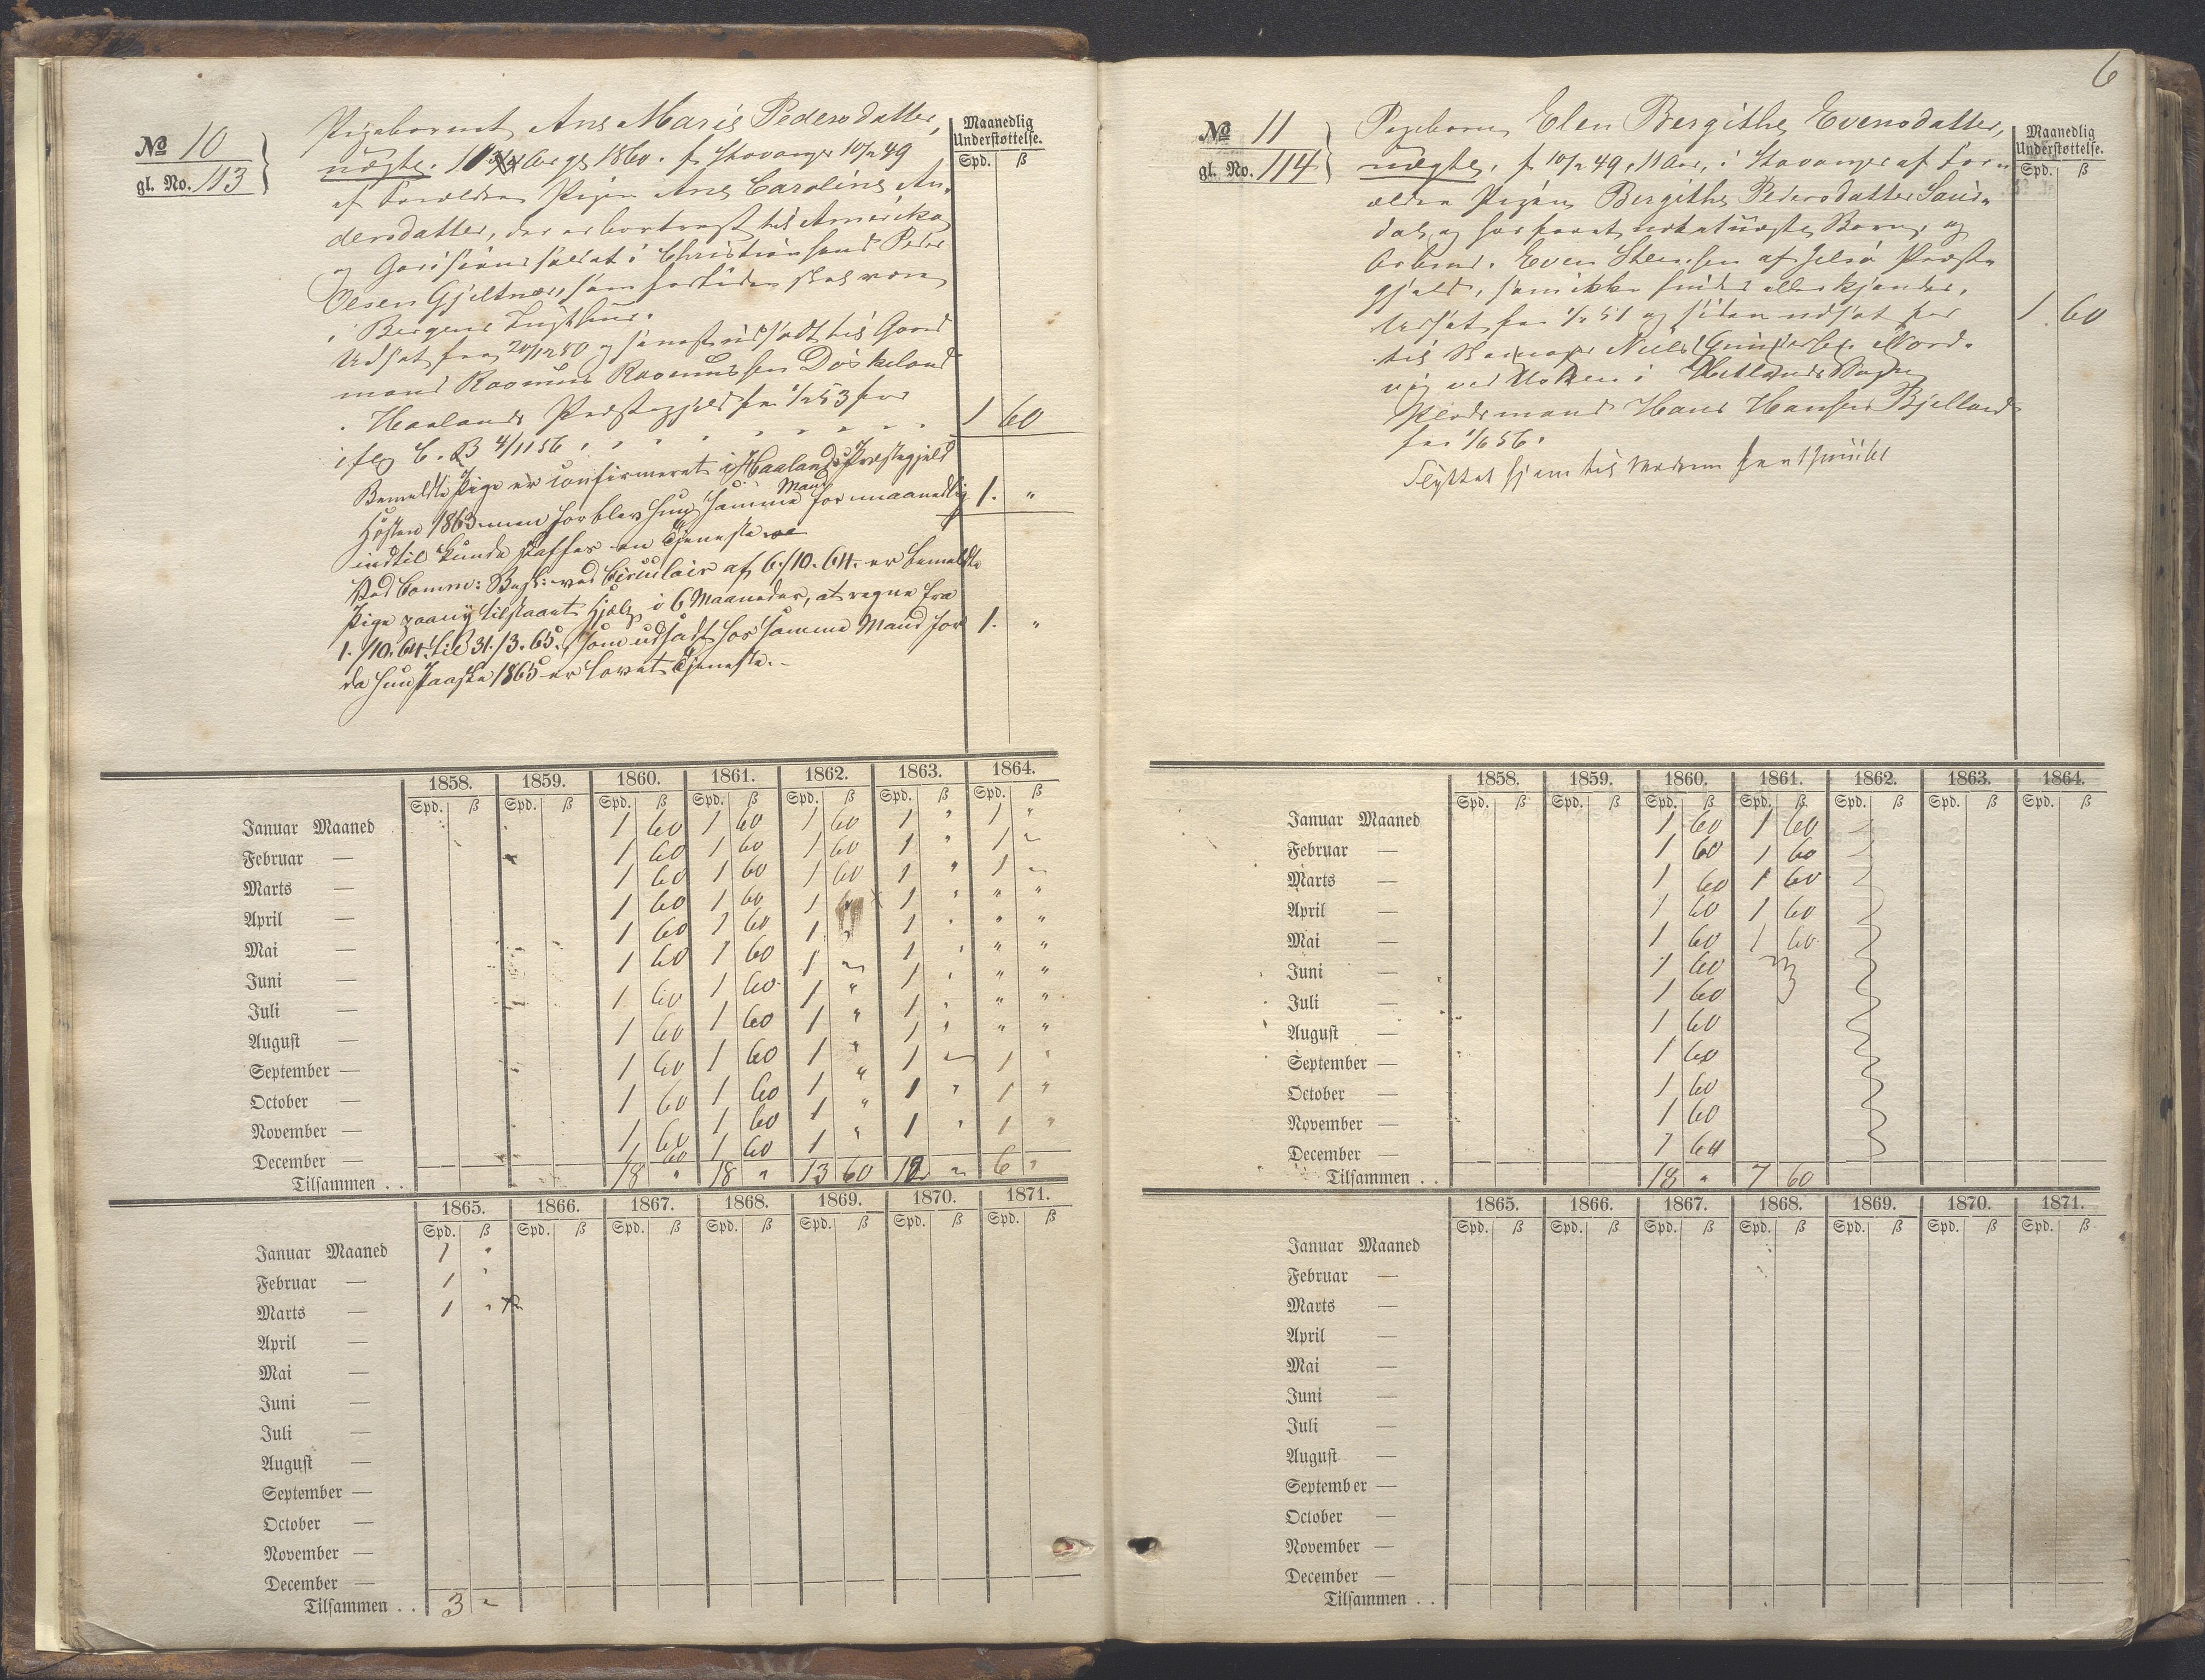 № 10
gl. No. 113
Pigebarnet Ane Marie Pedersdatter,
uægte. 10 Aar gl. 1860. f. Stavanger 10/12 49
af Forældre Pigen Ane Caroline An-
dersdatter, der er bortreist til Amerika
og Garnisons soldat i Christiansand Peder
Olsen Gjeltnæs, som for tiden skal være
i Bergens Tugthuus.
Udsat fra 20/12 50 og senest udsadt til Gaard
mand Rasmus Rasmussen Døskeland
i Haalands Præstegjeld fra 1/2 53 for
iflg C. B 4/11 56
Maanedlig
Understøttelse.
Spd. ß
1 60
Bemeldte Pige er confirmeret i Haalands Præstegjeld
Høsten 1863 men forblev hun samme Mand for maanedlig 1. "
indtil kunde skaffes en Tjeneste
Ved Comm: Besl: ved Circulair af 6/10. 64. er bemeldte
Pige paany tilstaaet Hjælp i 6 Maaneder, at regne fra
1./10. 64. til 31./3. 65. som udsadt hos samme Mand for 1. "
da hun Paaske 1865 er lovet Tjeneste.
1858. 1859. 1860. 1861. 1862. 1863. 1864.
Spd. ß Spd. ß Spd. ß Spd. ß Spd. ß Spd. ß Spd. ß
Januar Maaned 1 60 1 60 1 60 1 " 1 "
Februar — 1 60 1 60 1 60 1 " 1 "
Marts — 1 60 1 60 1 60 1 " 1 "
April — 1 60 1 60 1 1 " " "
Mai — 1 60 1 60 1 " 1 " " "
Juni — 1 60 1 60 1 " 1 " " "
Juli — 1 60 1 60 1 " 1 " " "
August — 1 60 1 60 1 " 1 " " "
September — 1 60 1 60 1 " 1 " " "
October — 1 60 1 60 1 " 1 " 1 "
November — 1 60 1 60 1 " 1 " 1 "
December — 1 60 1 60 1 " 1 " 1 "
Tilsammen . . 18 " 18 " 13 60 12 " 6 "
1865. 1866. 1867. 1868. 1869. 1870. 1871.
Spd. ß Spd. ß Spd. ß Spd. ß Spd. ß Spd. ß Spd. ß
Januar Maaned 1 "
Februar — 1 "
Marts — 1 "
April —
Mai —
Juni —
Juli —
August —
September —
October —
November —
December —
Tilsammen . . 3 "
6
№ 11
gl. No. 114
Pigebarn Elen Bergithe Evensdatter,
uægte, f. 10/12 49, 11 Aar, i Stavanger af For-
ældre Pigen Bergithe Pedersdatter Saud-
dal, og har foruden uægte Børn, og
Arbmd. Even Steensen af Jelsø Præste-
gjeld, som ikke findes eller kjendes.
Udsat fra 1/2 51 og siden udsat for
til Niels Gundersen Nord-
vig ved i Hetlands Sogn
Pleiemand Hans Hansen Bjelland
fra 1/6 56.
Flyttet hjem til Moderen
Maanedlig
Understøttelse.
Spd. ß
1 60
1858. 1859. 1860. 1861. 1862. 1863. 1864.
Spd. ß Spd. ß Spd. ß Spd. ß Spd. ß Spd. ß Spd. ß
Januar Maaned 1 60 1 60
Februar — 1 60 1 60
Marts — 1 60 1 60
April — 1 60 1 60
Mai — 1 60 1 60
Juni — 1 60
Juli — 1 60
August — 1 60
September — 1 60
October — 1 60
November — 1 60
December — 1 60
Tilsammen . . 18 " 7 60
1865. 1866. 1867. 1868. 1869. 1870. 1871.
Spd. ß Spd. ß Spd. ß Spd. ß Spd. ß Spd. ß Spd. ß
Januar Maaned
Februar —
Marts —
April —
Mai —
Juni —
Juli —
August —
September —
October —
November —
December —
Tilsammen . .